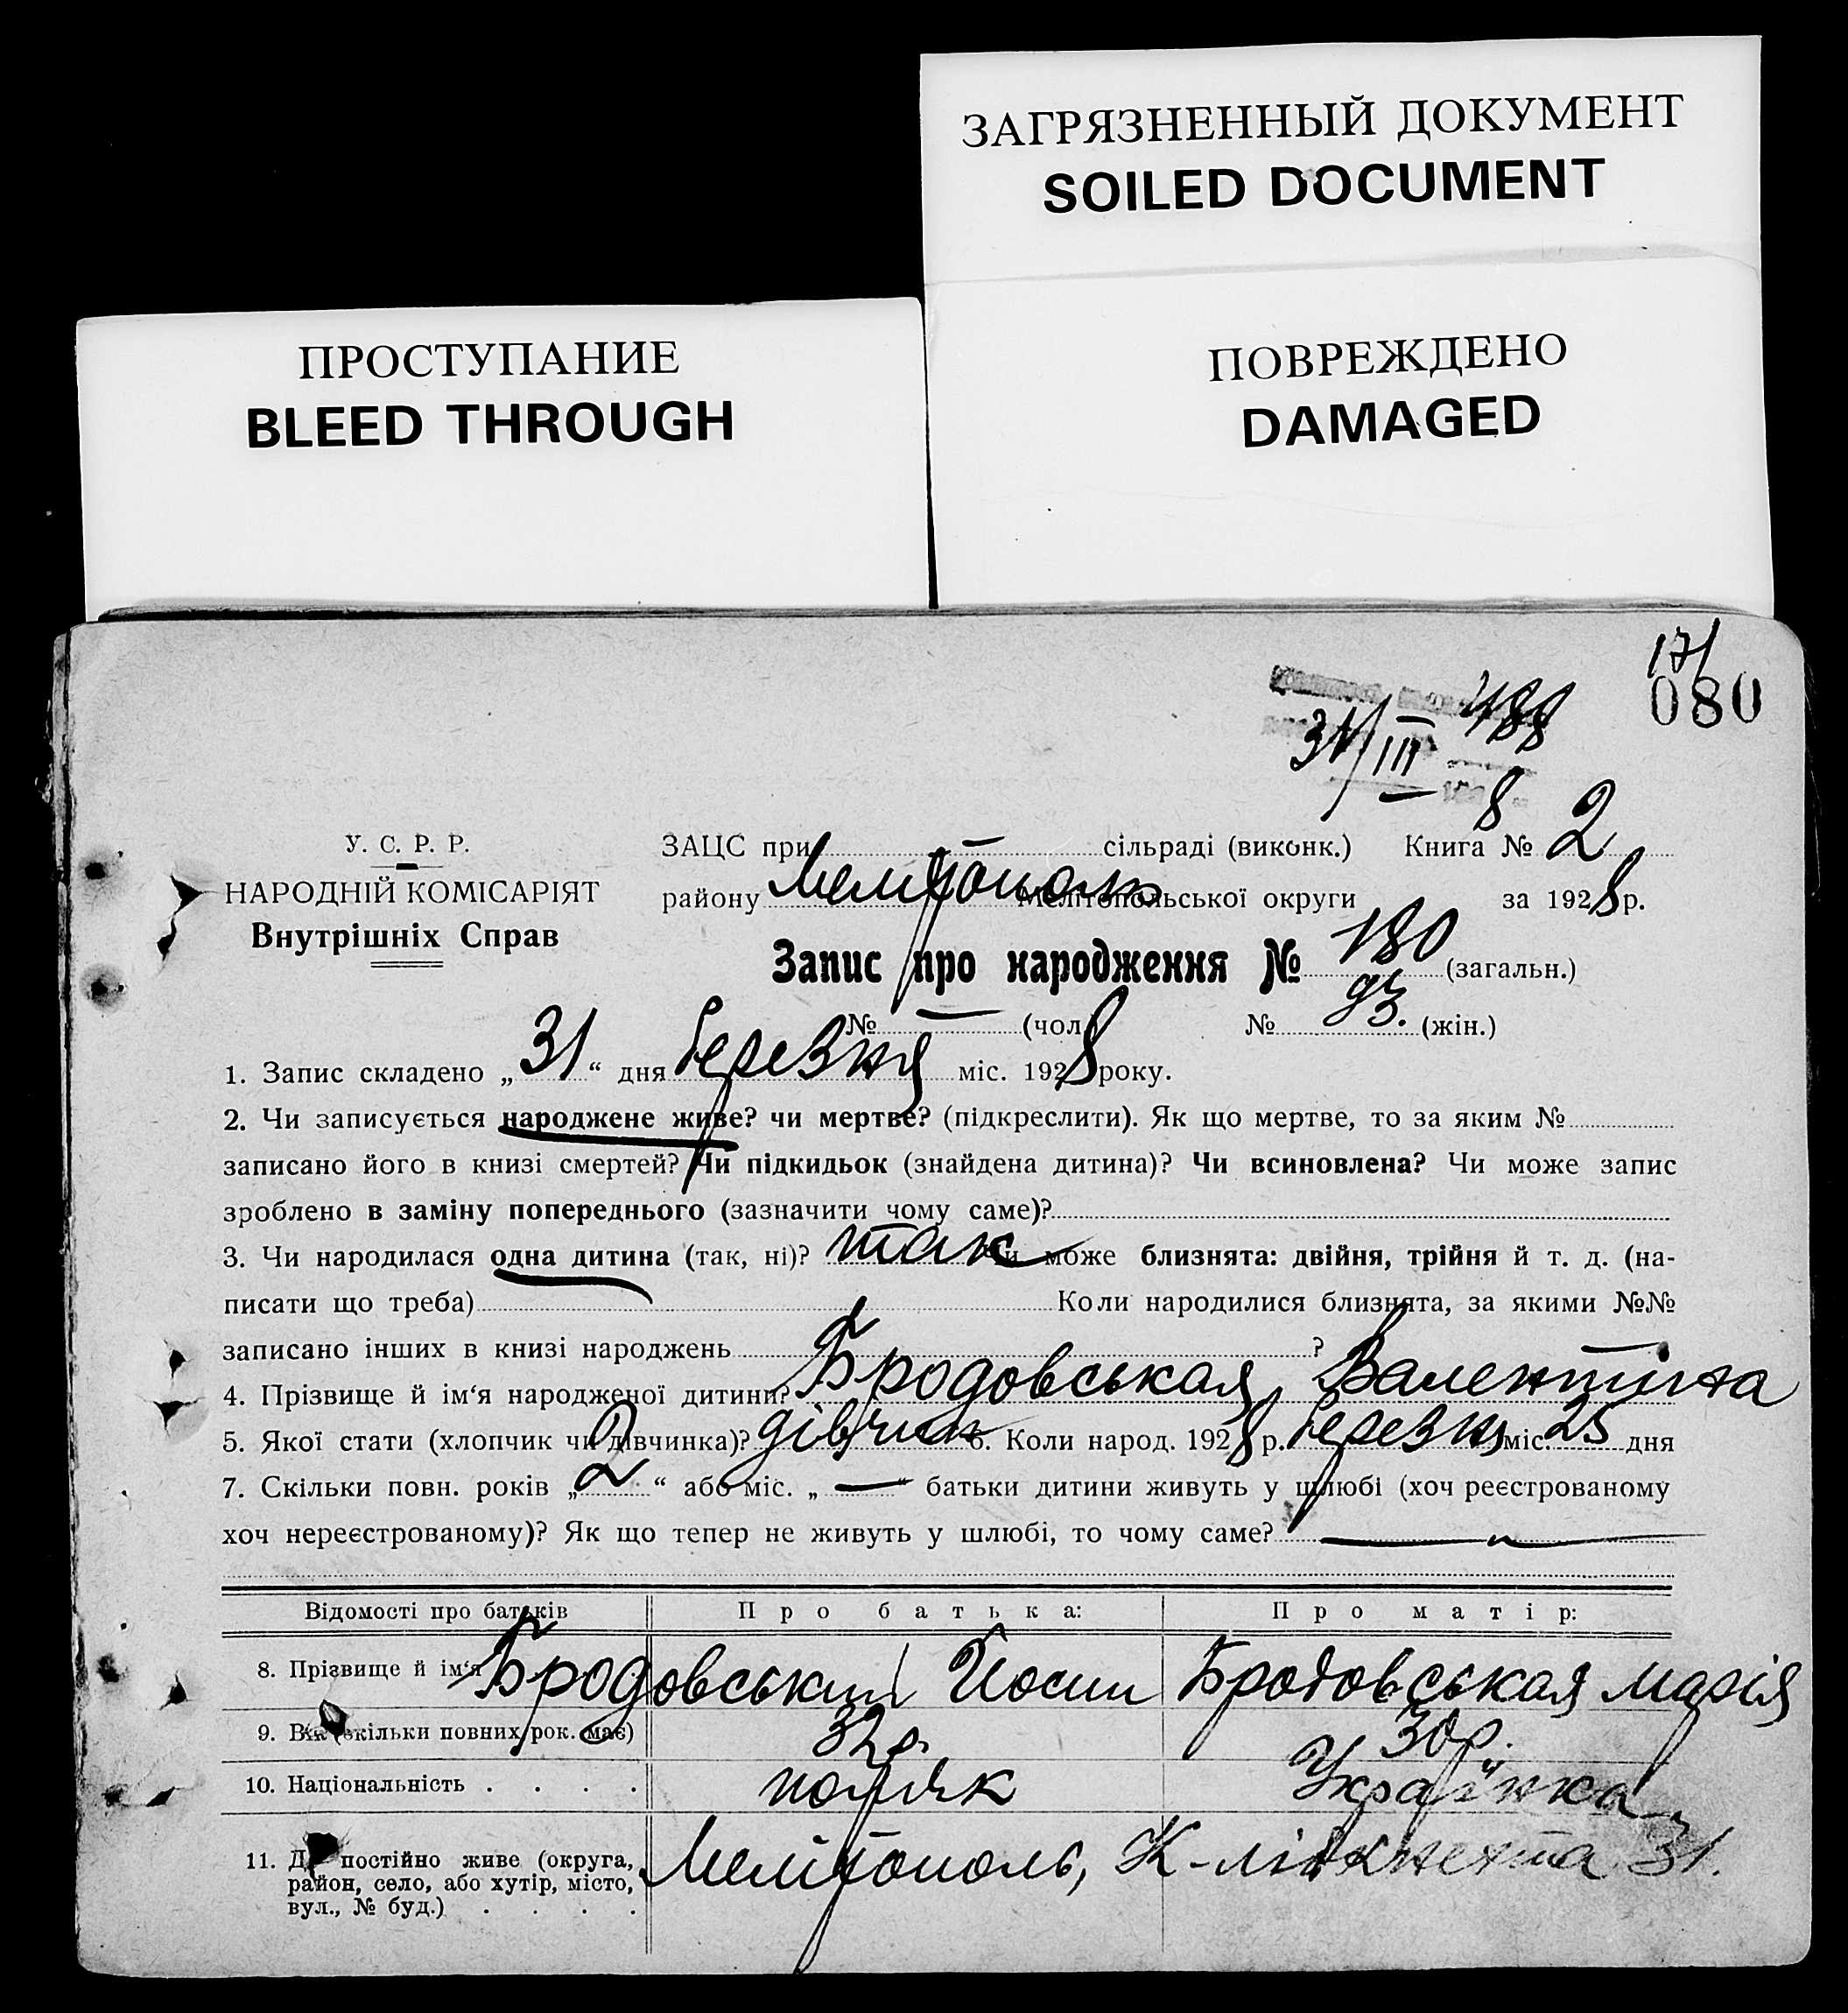 ЗАГРЯЗНЕННЫЙ ДОКУМЕНТ
SOILED DOCUMENT
ПРОСТУПАНИЕ
BLEED THROUGH
ПОВРЕЖДЕНО
DAMAGED
171
080
31/III 488
8
У. С. Р. Р.
НАРОДНІЙ КОМІСАРІЯТ
Внутрішніх Справ
ЗАЦС при сільраді (виконк.) Книга № 2
району Мелітополь Мелітопольської округи за 1928 р.
Запис про народження № 180 (загальн.)
№ — (чол.) № 93. (жін.)
1. Запис складено „31“ дня березня міс. 1928 року.
2. Чи записується народжене живе? чи мертве? (підкреслити). Як що мертве, то за яким №
записано його в книзі смертей? Чи підкидьок (знайдена дитина)? Чи всиновлена? Чи може запис
зроблено в заміну попереднього (зазначити чому саме)?
3. Чи народилася одна дитина (так, ні)? так Чи може близнята: двійня, трійня й т. д. (на-
писати що треба) Коли народилися близнята, за якими №№
записано інших в книзі народжень ?
4. Прізвище й ім‘я народженої дитини? Бродовськая, Валентіна
5. Якої стати (хлопчик чи дівчинка)? дівчин 6. Коли народ. 1928 р. березня міс. 25 дня
7. Скільки повн. років „2“ або міс. „—“ батьки дитини живуть у шлюбі (хоч реєстрованому
хоч нереєстрованому)? Як що тепер не живуть у шлюбі, то чому саме? —
Відомості про батьків Про батька: Про матір:
8. Прізвище й ім‘я Бродовський Йосип Бродовськая Марія
9. Вік (скільки повних рок. має) 32 р. 30 р.
10. Національність . . . . поляк Українка
11. Де постійно живе (округа, Мелітополь, К-лібкнехта 31.
район, село, або хутір, місто,
вул., № буд.) . . . .